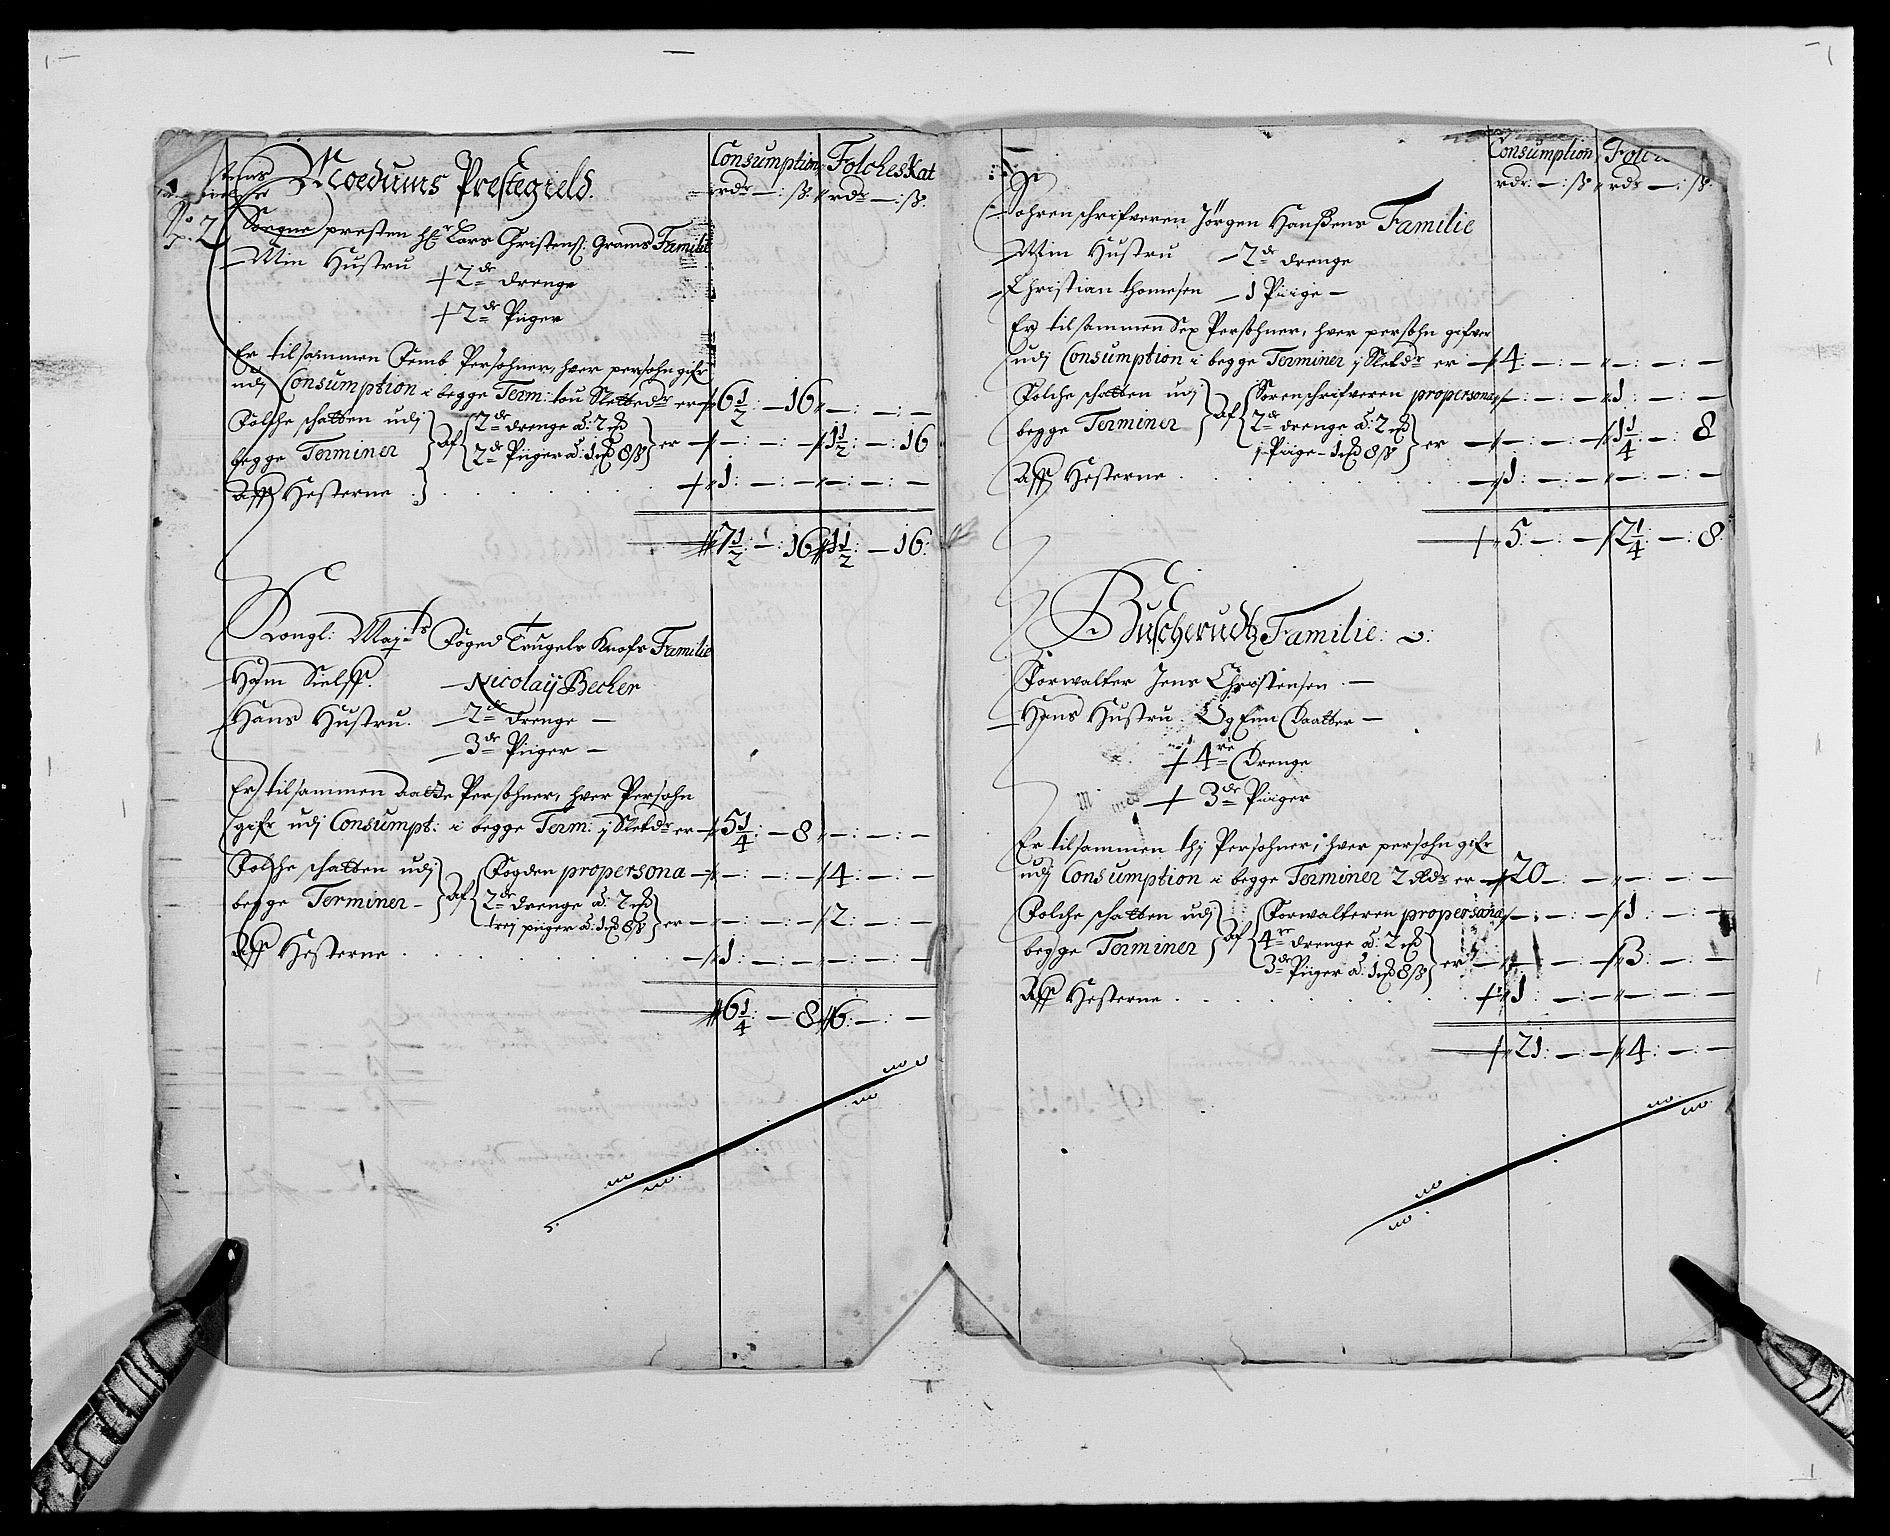 Moedums Prestegield.
Consumption Folcheskat
rdr — : ß rdr — : ß
No 2
Sogne presten hr Lars Christens: Grams Familie
Min Hustru
2de drenge
2de Piiger
Er tilsammen Femb Persohner, hver persohn gifr
udj Consumption i begge Term: tou Slettedr er 6 1/2 : — 16 — : — : —
Folche schatten udj
begge Terminer
af
2de drenge a: 2
2de Piiger a: 1 8 ß
er — : — : — 1 1/2 : — : 16
Aff Hesterne 1 : — : — — : — : —
7 1/2 : — : 16 1 1/2 : — 16
Kongl: Mayts Foged Trugels Knofs Familie
Ham Sielff. Nicolaÿ Becher
Hans Hustru. 2de drenge —
3de Piiger —
Er tilsammen aatte Persohner, hver Persohn
gifr udj Consumpt: i begge Term: j Sletdr er 5 1/4 : — 8 — : — : —
Folche schatten udj
begge Terminer
af
Fogden propersona — : — : — 4 : — : —
2de drenge a: 2
trej piiger a: 1 8 ß
er — : — : — 2 : — : —
Aff Hesterne 1 : — : — — : — : —
6 1/4 : — 8 6 : — : —
Consumption Folc
rdr : — : ß rdr — : ß
Sohrenschrifveren Jörgen Hanßens Familie
Min Hustru — 2de drenge
Christian thomesen — 1 Piige —
Er tilsammen Sex Persohner, hver persohn gifver
udj Consumption i begge Terminer j Sletdr er 4 : — : — — : — : —
Folche schatten udj
begge Terminer
af
Sorenschrifveren propersona — : — : — 1 : — : —
2de drenge a: 2
1 Piige — 1 8 ß
er — : — : — 1 1/4 — : 8
Aff Hesterne 1 : — : — — : — : —
5 : — : — 2 1/4 — : 8
Buscherudtz Familie
Forwalter Jens Christensen. —
Hans Hustru. Og Enn Daatter —
4re Drenge
3de Piiger
Er tilsammen thj Persohner, hver persohn gifr
udj Consumption i begge Terminer 2 Sldr er 20 — : — — : — : —
Folche schatten udj
begge Terminer
af
Forwalteren propersona — : — : — 1 : — : —
4re drenge a: 2
3de Piiger a: 1 8 ß
er — : — : — 3 : — : —
Aff Hesterne 1 : — : — — : — : —
21 : — : — 4 : — : —